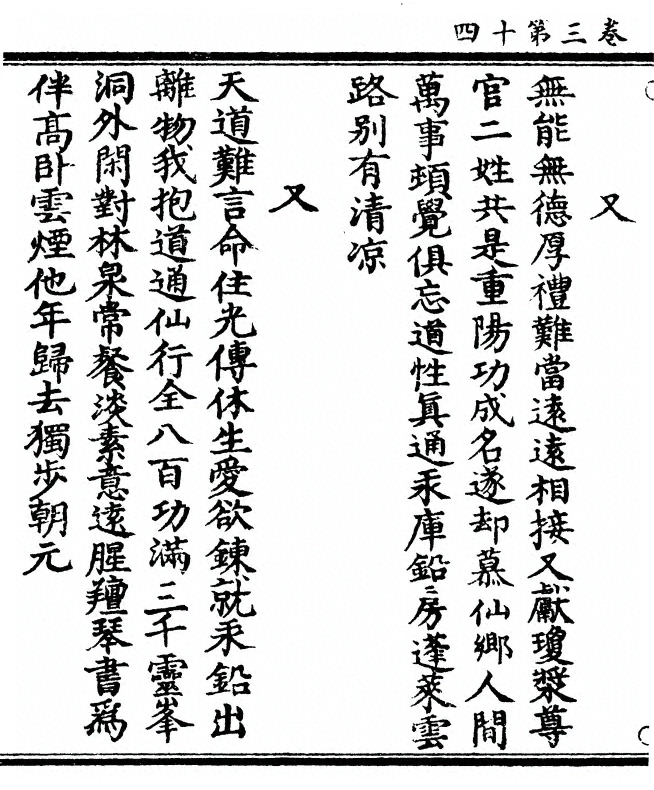 卷三第十四
又
無能無德厚禮難當遠遠相接又獻瓊漿尊
官二姓共是重陽功成名遂却慕仙鄉人間
萬事頓覺俱忘道性眞通汞庫鉛房蓬萊雲
路别有清凉
又
天道難言命住光傳休生愛欲鍊就汞鉛出
離物我抱道通仙行全八百功滿三千靈峯
洞外閑對林泉常餐淡素意遠腥羶琴書爲
伴高卧雲煙他年歸去獨步朝元